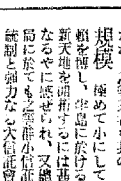 規模 極めて小にして
頼を博し、半島に於ける
新天地を開拓するには甚
なるやに感ぜられ、又總
局に於ても之等群小信託
統制と強力なる大信託會